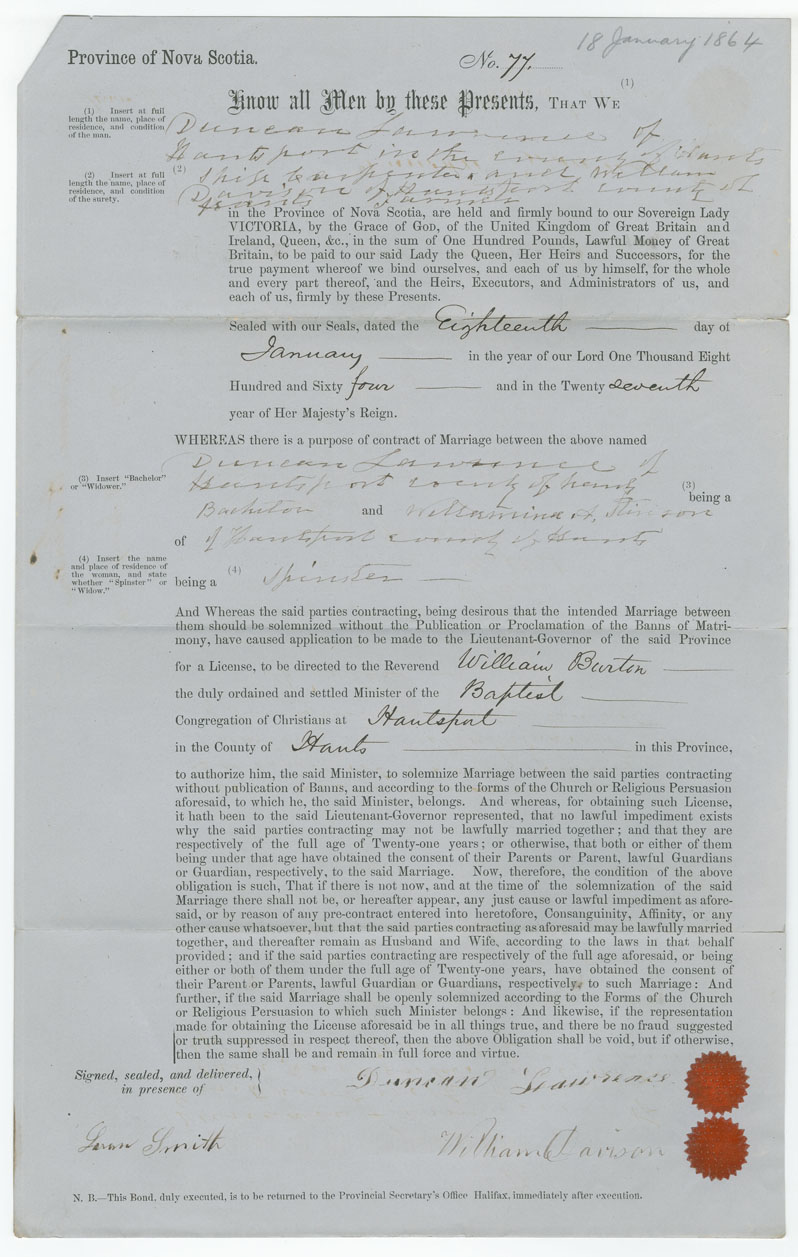 18 January 1864
Province of Nova Scotia.
No. 77.
Know all Men by these Presents, THAT WE (1)
(1) Insert at full
length the name, place of
residence, and condition
of the man.
Duncan Lawrence of
Hantsport in the county of Hants
(2) Insert at full
length the name, place of
residence, and condition
of the surety.
(2) Ship Carpenter and William
Davison of Hantsport county of
Hants Farmer
in the Province of Nova Scotia, are held and firmly bound to our Sovereign Lady
VICTORIA, by the Grace of GOD, of the United Kingdom of Great Britain and
Ireland, Queen, &c., in the sum of One Hundred Pounds, Lawful Money of Great
Britain, to be paid to our said Lady the Queen, Her Heirs and Successors, for the
true payment whereof we bind ourselves, and each of us by himself, for the whole
and every part thereof, and the Heirs, Executors, and Administrators of us, and
each of us, firmly by these Presents.
Sealed with our Seals, dated the Eighteenth day of
January in the year of our Lord One Thousand Eight
Hundred and Sixty four and in the Twenty seventh
year of Her Majesty's Reign.
WHEREAS there is a purpose of contract of Marriage between the above named
Duncan Lawrence of
(3) Insert "Bachelor"
or "Widower."
Hantsport county of hants (3) being a
Bachelor and A. Stinson
of of Hantsport county of Hants
(4) Insert the name
and place of residence of
the woman, and state
whether "Spinster" or
"Widow."
being a (4) Spinster
And Whereas the said parties contracting, being desirous that the intended Marriage between
them should be solemnized without the Publication or Proclamation of the Banns of Matri-
mony, have caused application to be made to the Lieutenant-Governor of the said Province
for a License, to be directed to the Reverend William Burton
the duly ordained and settled Minister of the Baptist
Congregation of Christians at Hantsport
in the County of Hants in this Province,
to authorize him, the said Minister, to solemnize Marriage between the said parties contracting
without publication of Banns, and according to the forms of the Church or Religious Persuasion
aforesaid, to which he, the said Minister, belongs. And whereas, for obtaining such License,
it hath been to the said Lieutenant-Governor represented, that no lawful impediment exists
why the said parties contracting may not be lawfully married together; and that they are
respectively of the full age of Twenty-one years; or otherwise, that both or either of them
being under that age have obtained the consent of their Parents or Parent, lawful Guardians
or Guardian, respectively, to the said Marriage. Now, therefore, the condition of the above
obligation is such, That if there is not now, and at the time of the solemnization of the said
Marriage there shall not be, or hereafter appear, any just cause or lawful impediment as afore-
said, or by reason of any pre-contract entered into heretofore, Consanguinity, Affinity, or any
other cause whatsoever, but that the said parties contracting as aforesaid may be lawfully married
together, and thereafter remain as Husband and Wife, according to the laws in that behalf
provided; and if the said parties contracting are respectively of the full age aforesaid, or being
either or both of them under the full age of Twenty-one years, have obtained the consent of
their Parent or Parents, lawful Guardian or Guardians, respectively, to such Marriage: And
further, if the said Marriage shall be openly solemnized according to the Forms of the Church
or Religious Persuasion to which such Minister belongs: And likewise, if the representation
made for obtaining the License aforesaid be in all things true, and there be no fraud suggested
or truth suppressed in respect thereof, then the above Obligation shall be void, but if otherwise,
then the same shall be and remain in full force and virtue.
Signed, sealed, and delivered,
in presence of
Duncan Lawrence
Smith
William Davison
N. B.—This Bond, duly executed, is to be returned to the Provincial Secretary's Office Halifax, immediately after execution.